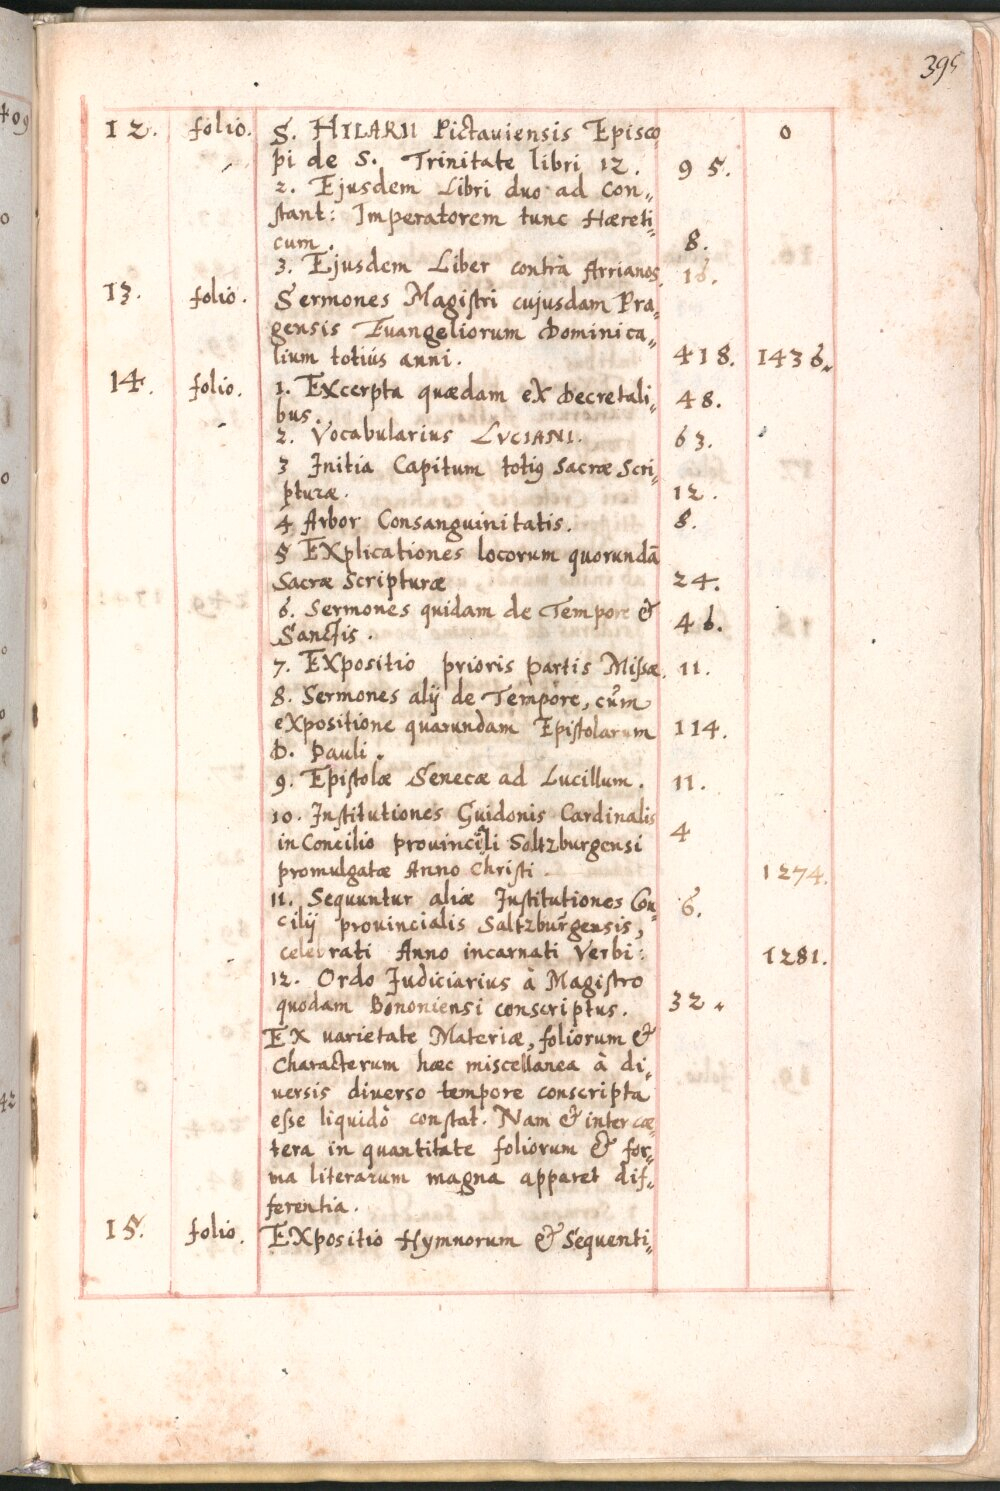 395
12. folio. S. HILARII Pictauiensis Episco 0
pi de S. Trinitate libri 12. 95.
2. Ejusdem Libri duo ad Con„
stant: Imperatorem tunc Hæreti„
cum. 8.
3. Ejusdem Liber contrà Arrianos. 16.
13. folio. Sermones Magistri cujusdam Pra„
gensis Euangeliorum Dominica„
lium totiùs anni. 418. 1436.
14. folio. 1. Excerpta quædam ex Decretali„ 48.
bus.
2. Vocabularius LVCIANI. 63.
3 Initia Capitum totig Sacræ Scri„
pturæ. 12.
4 Arbor Consanguinitatis. 8.
5 EXplicationes locorum quorundã
Sacræ Scripturæ 24.
6. Sermones quidam de Tempore & 46.
Sanctis.
7. EXpositio prioris partis Missæ. 11.
8. Sermones alij de Tempore, cùm
eXpositione quarundam Epistolarum 114.
D. Pauli.
9. Epistolæ Senecæ ad Lucillum. 11.
10. Institutiones Guidonis Cardinalis
in Concilio prouinciali Saltzburgensi 4
promulgatæ Anno Christi. 1274.
11. Sequuntur aliæ Institutiones Con„ 6.
cilij prouincialis Saltzburgensis,
celebrati Anno incarnati Verbi: 1281.
12. Ordo Judiciarius à Magistro
quodam Bononiensi conscriptus. 32.
EX varietate Materiæ, foliorum &
Characterum hæc miscellanea à di„
uersis diuerso tempore conscripta
esse liquidò constat. Nam & inter cæ„
tera in quantitate foliorum & for„
ma literarum magna apparet dif„
ferentia.
15. folio. EXpositio Hymnorum & Sequenti„